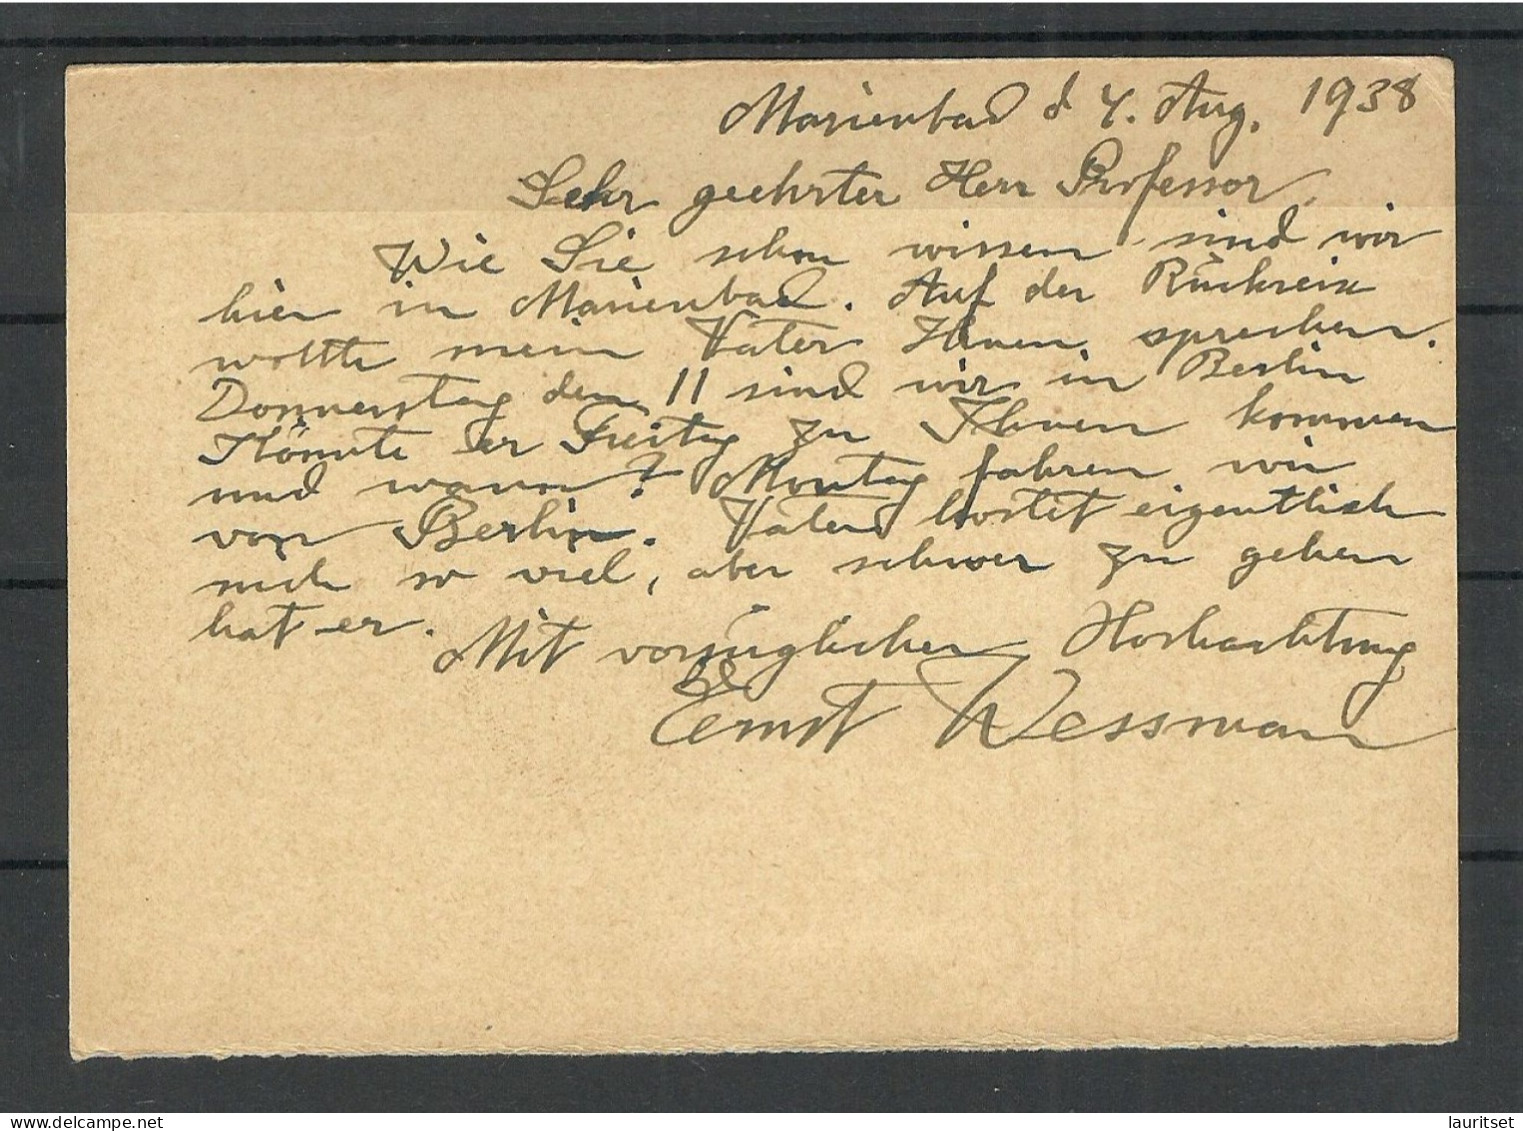 Marienbad d 4. Aug. 1938
Sehr geehrter Herr Professor,
Wie Sie schon wissen sind wir
hier in Marienbad. Auf der Rückreise
wollte mein Vater Ihnen sprechen.
Donnerstag den 11 sind wir in Berlin
Könnte er Freitag zu Ihnen kommen
und wann? Montag fahren wir
von Berlin. Vater hustet eigentlich
nicht so viel, aber schwer zu gehen
hat er.
Mit vorzüglicher Hochachtung
Ernst Wessman
lauritset